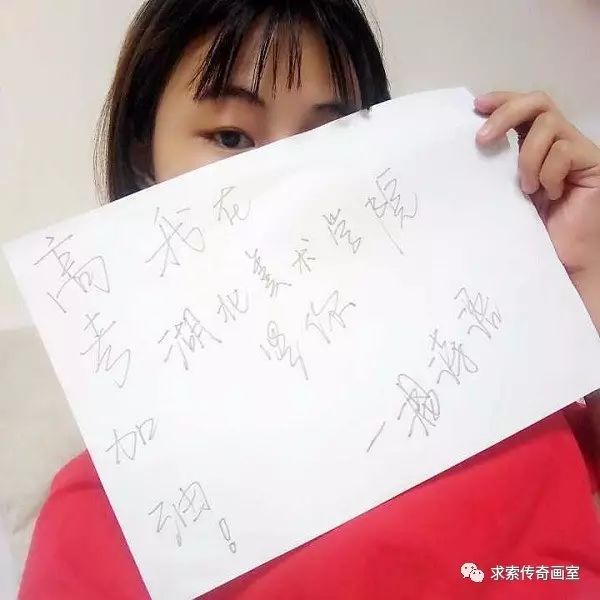 高考加油！
我在
湖北美术学院
等你
一杨诗语
求索传奇画室